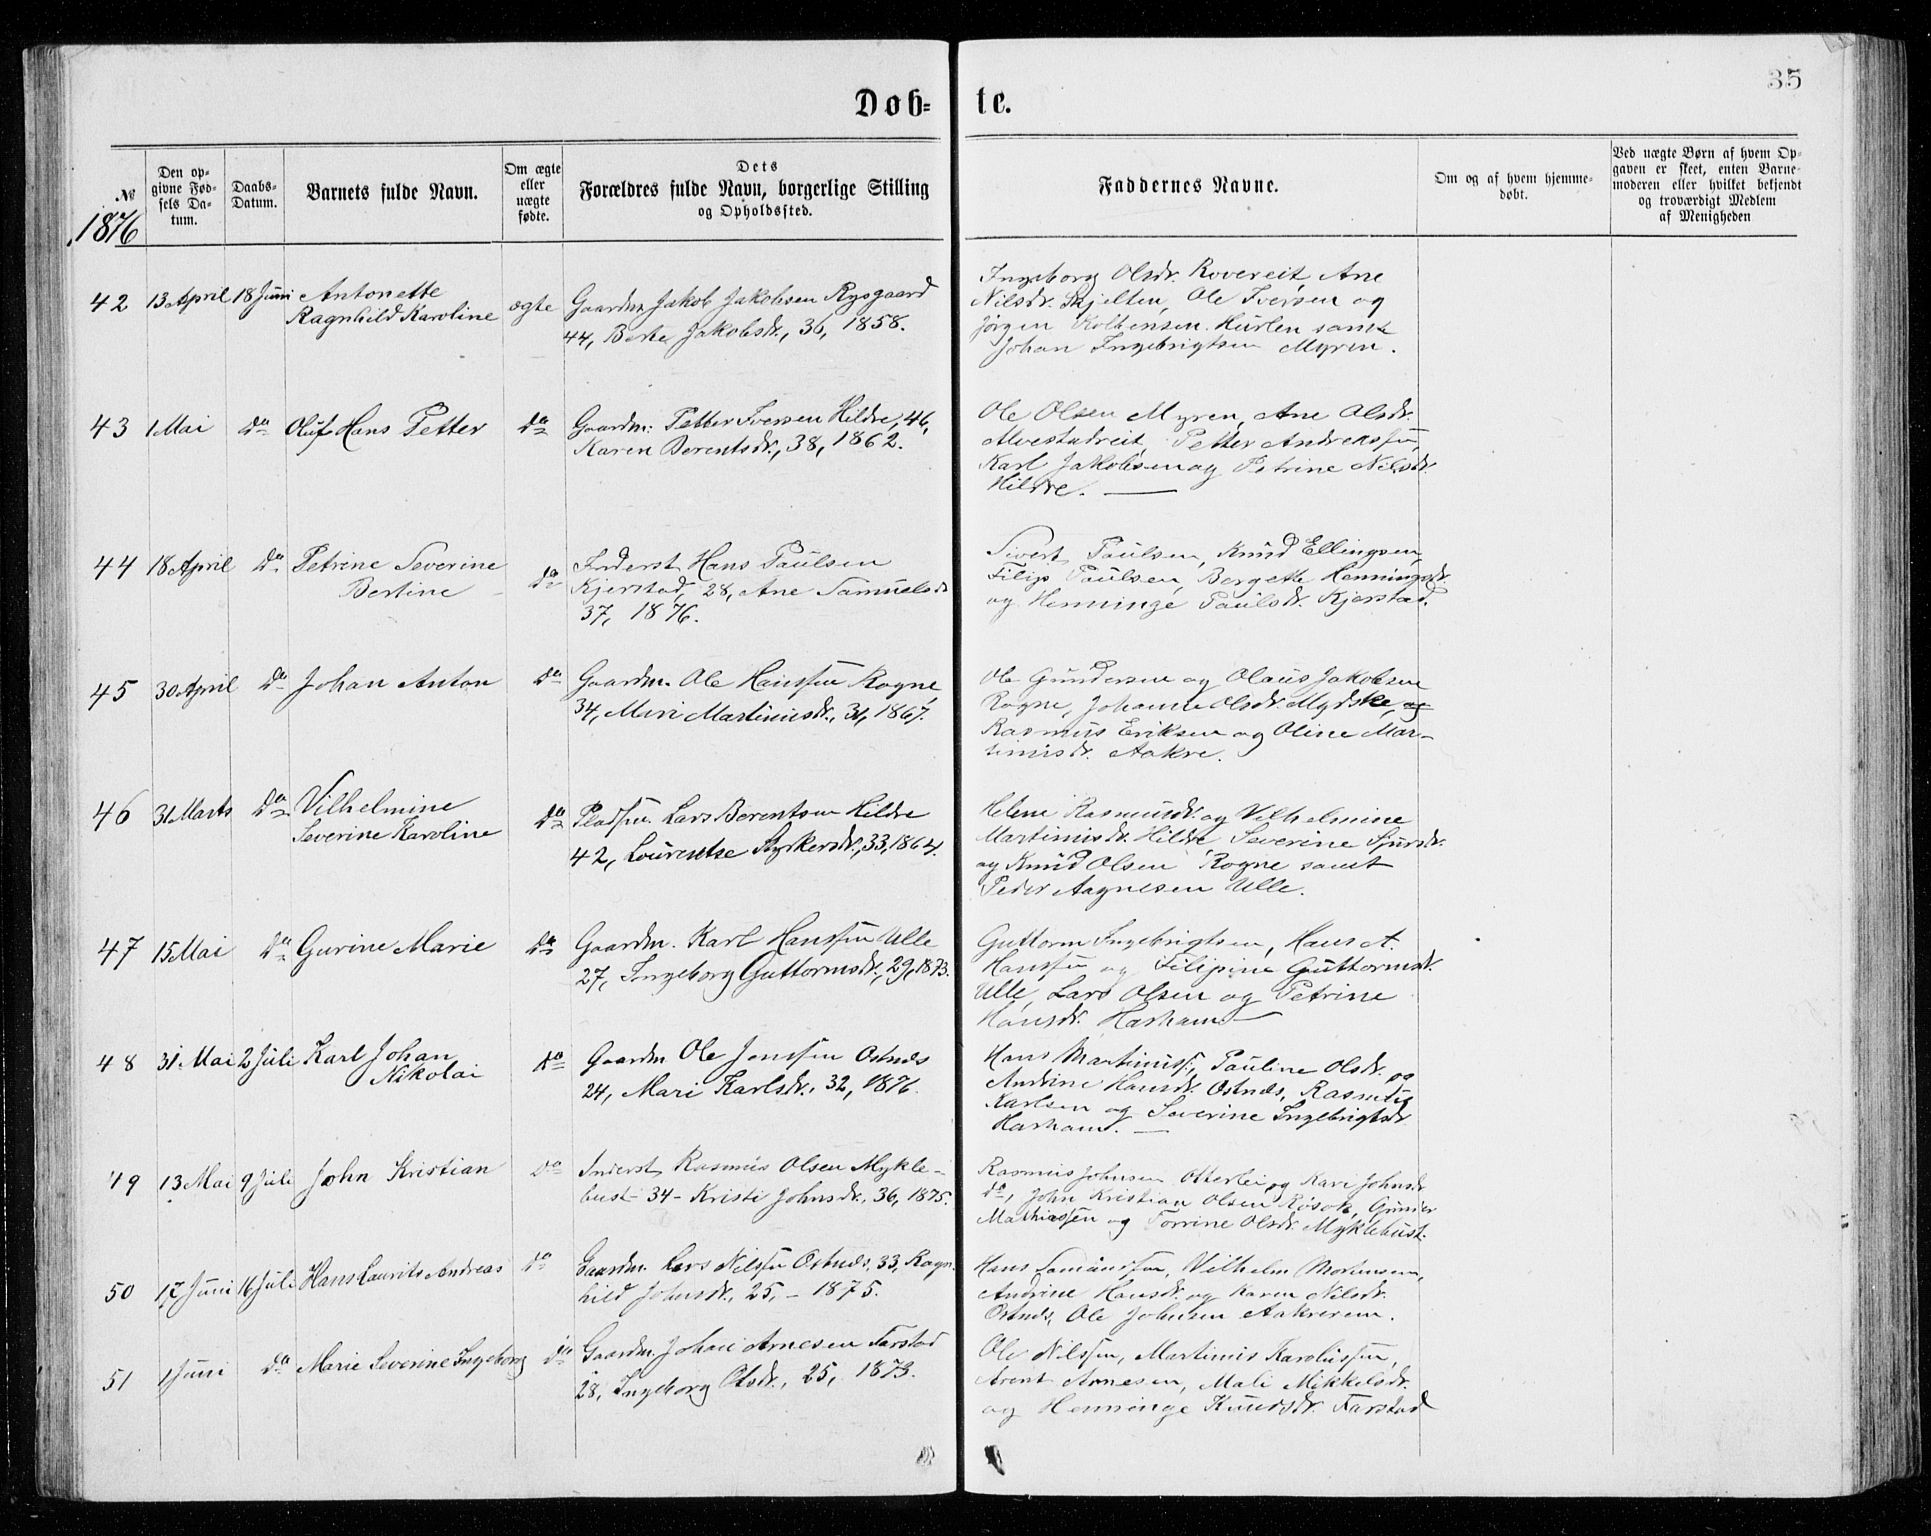 35
Døb=
te.
№
1876
Den op=
givne Fød=
sels Da=
tum.
Daabs=
Datum.
Barnets fulde Navn.
Om ægte
eller
uægte
fødte.
Dets
Forældres fulde Navn, borgerlige Stilling
og Opholdssted.
Faddernes Navne.
Om og af hvem hjemme=
døbt.
Ved uægte Børn af hvem Op=
gaven er skeet, enten Barne=
moderen eller hvilket bekjendt
og troværdigt Medlem
af Menigheden
42 13 April 18 Juni Antonette
Ragnhild Karoline
ægte
Gaardm. Jakob Jakobsen Rysgaard
44, Berte Jakobsdr., 36, 1858.
Ingeborg Olsdr. Rovereit, Ane
Nilsdr. Skjelten, Ole Iversen og
Jørgen Kolbensen Hurlen samt
Johan Ingebrigtsen Myren.
43 1 Mai do Oluf Hans Petter do
Gaardm. Petter Iversen Hildre, 46,
Karen Berentsdr., 38, 1862.
Ole Olsen Myren, Ane Olsdr.
Alvestadreit, Petter Andreassen,
Karl Jakobsen og Petrine Nilsdr.
Hildre.
44 18 April do Petrine Severine
Bertine
do
Inderst Hans Paulsen
Kjerstad, 28, Ane Samuelsdr.
37, 1876.
Sivert Paulsen, Knud Ellingsen,
Filip Paulsen, Bergette Henningsdr.
og Henninge Paulsdr. Kjerstad.
45 30 April do Johan Anton do
Gaardm. Ole Hanssen Rogne,
34, Mari Martinusdr., 31, 1867.
Ole Gundersen og Olaus Jakobsen
Rogne, Johanne Olsdr. Mydske, og
Rasmus Eriksen og Oline Mar-
tinusdr. Aakre.
46 31 Marts do Vilhelmine
Severine Karoline
do
Pladsm. Lars Berentsen Hildre
42, Lourentse Styrkersdr., 33, 1864.
Helene Rasmusdr. og Vilhelmine
Martinusdr. Hildre Severine Sjursdr.
og Knud Olsen Rogne samt
Peder Aagnesen Ulle.
47 15 Mai do Gurine Marie do
Gaardm. Karl Hanssen Ulle
27, Ingeborg Guttormsdr., 29, 1873.
Guttorm Ingebrigtsen, Hans A.
Hanssen og Filipine Guttormsdr.
Ulle, Lars Olsen og Petrine
Hansdr. Harham
48 31 Mai 2 Juli Karl Johan
Nikolai
do
Gaardm Ole Jonssen Ostnes
24, Mari Karlsdr. 32, 1876.
Hans Martinuss., Pauline Olsdr. og
Andrine Hansdr. Ostnes, Rasmus
Karlsen og Severine Ingebrigtsdr.
Harham.
49 13 Mai 9 Juli John Kristian do
Inderst Rasmus Olsen Mykle-
bust - 34 - Kristi Johnsdr., 36, 1875.
Rasmus Johnsen Otterlei og Kari Johnsdr.
do, John Kristian Olsen Røsok, Gunder
Mathiassen og Torrine Olsdr. Myklebust.
50 17 Juni 16 Juli Hans Laurits Andreas do
Gaardm. Lars Nilssen Ostnes, 33, Ragn-
hild Johnsdr. 25, - 1875.
Hans Vilhelm Mortensen,
Andrine Hansdr. og Karen Nilsdr.
Ostnes, Ole Johnsen Aakrerem.
51 1 Juni do Marie Severine Ingeborg do
Gaardm. Johan Arnesen Farstad
28, Ingeborg Olsdr., 25, 1873.
Ole Nilssen, Martinus Karolussen,
Arent Arnesen, Mali Mikkelsdr.
og Henninge Knudsdr. Farstad